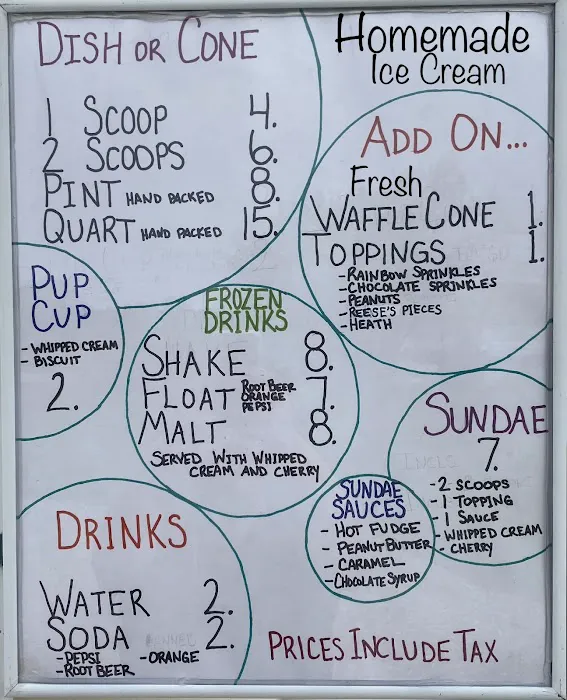 DISH OR CONE
1 SCOOP 4.
2 SCOOPS 6.
PINT HAND PACKED 8.
QUART HAND PACKED 15.
Homemade
Ice Cream
ADD ON...
Fresh
WAFFLE CONE 1.
TOPPINGS 1.
-RAINBOW SPRINKLES
-CHOCOLATE SPRINKLES
-PEANUTS
-REESE'S PIECES
-HEATH
PUP
CUP
- WHIPPED CREAM
- BISCUIT
2.
FROZEN
DRINKS
SHAKE 8.
FLOAT ROOT BEER 7.
ORANGE
PEPSI
MALT 8.
SERVED WITH WHIPPED
CREAM AND CHERRY
SUNDAE
7.
-2 SCOOPS
-1 TOPPING
-1 SAUCE
-WHIPPED CREAM
- CHERRY
SUNDAE
SAUCES
- HOT FUDGE
- PEANUT BUTTER
- CARAMEL
-CHOCOLATE SYRUP
DRINKS
WATER 2.
SODA 2.
-PEPSI -ORANGE
-ROOT BEER
PRICES INCLUDE TAX